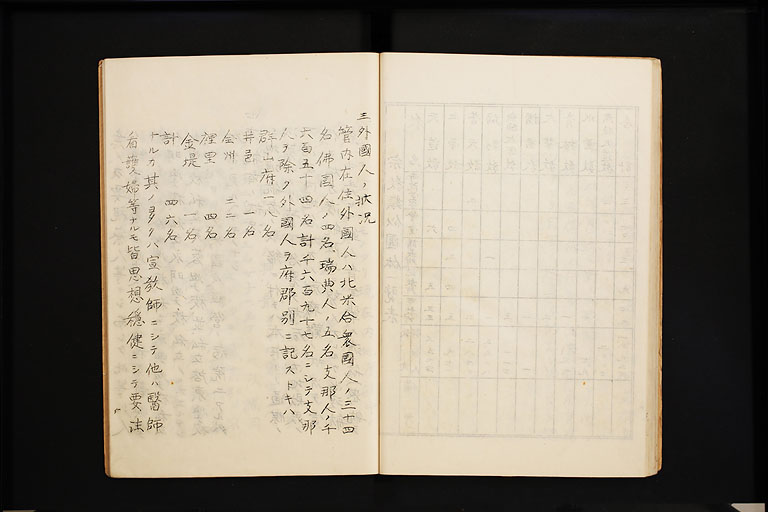 三外國人ノ状況
管內在住外國人ハ北米合衆國人ノ三十四
名佛國人ノ四名、瑞典人ノ五名支那人ノ千
六百五十四名計千六百九十七名ニシテ支那
人ヲ除ク外國人ヲ府郡別ニ記ストキハ
群山府一八名
井邑 一名
全州 二二名
裡里 四名
金堤 一名
計 四六名
ナルカ其ノ多クハ宣敎師ニシテ他ハ醫師
看護婦等ナルモ皆思想穩健ニシテ要注